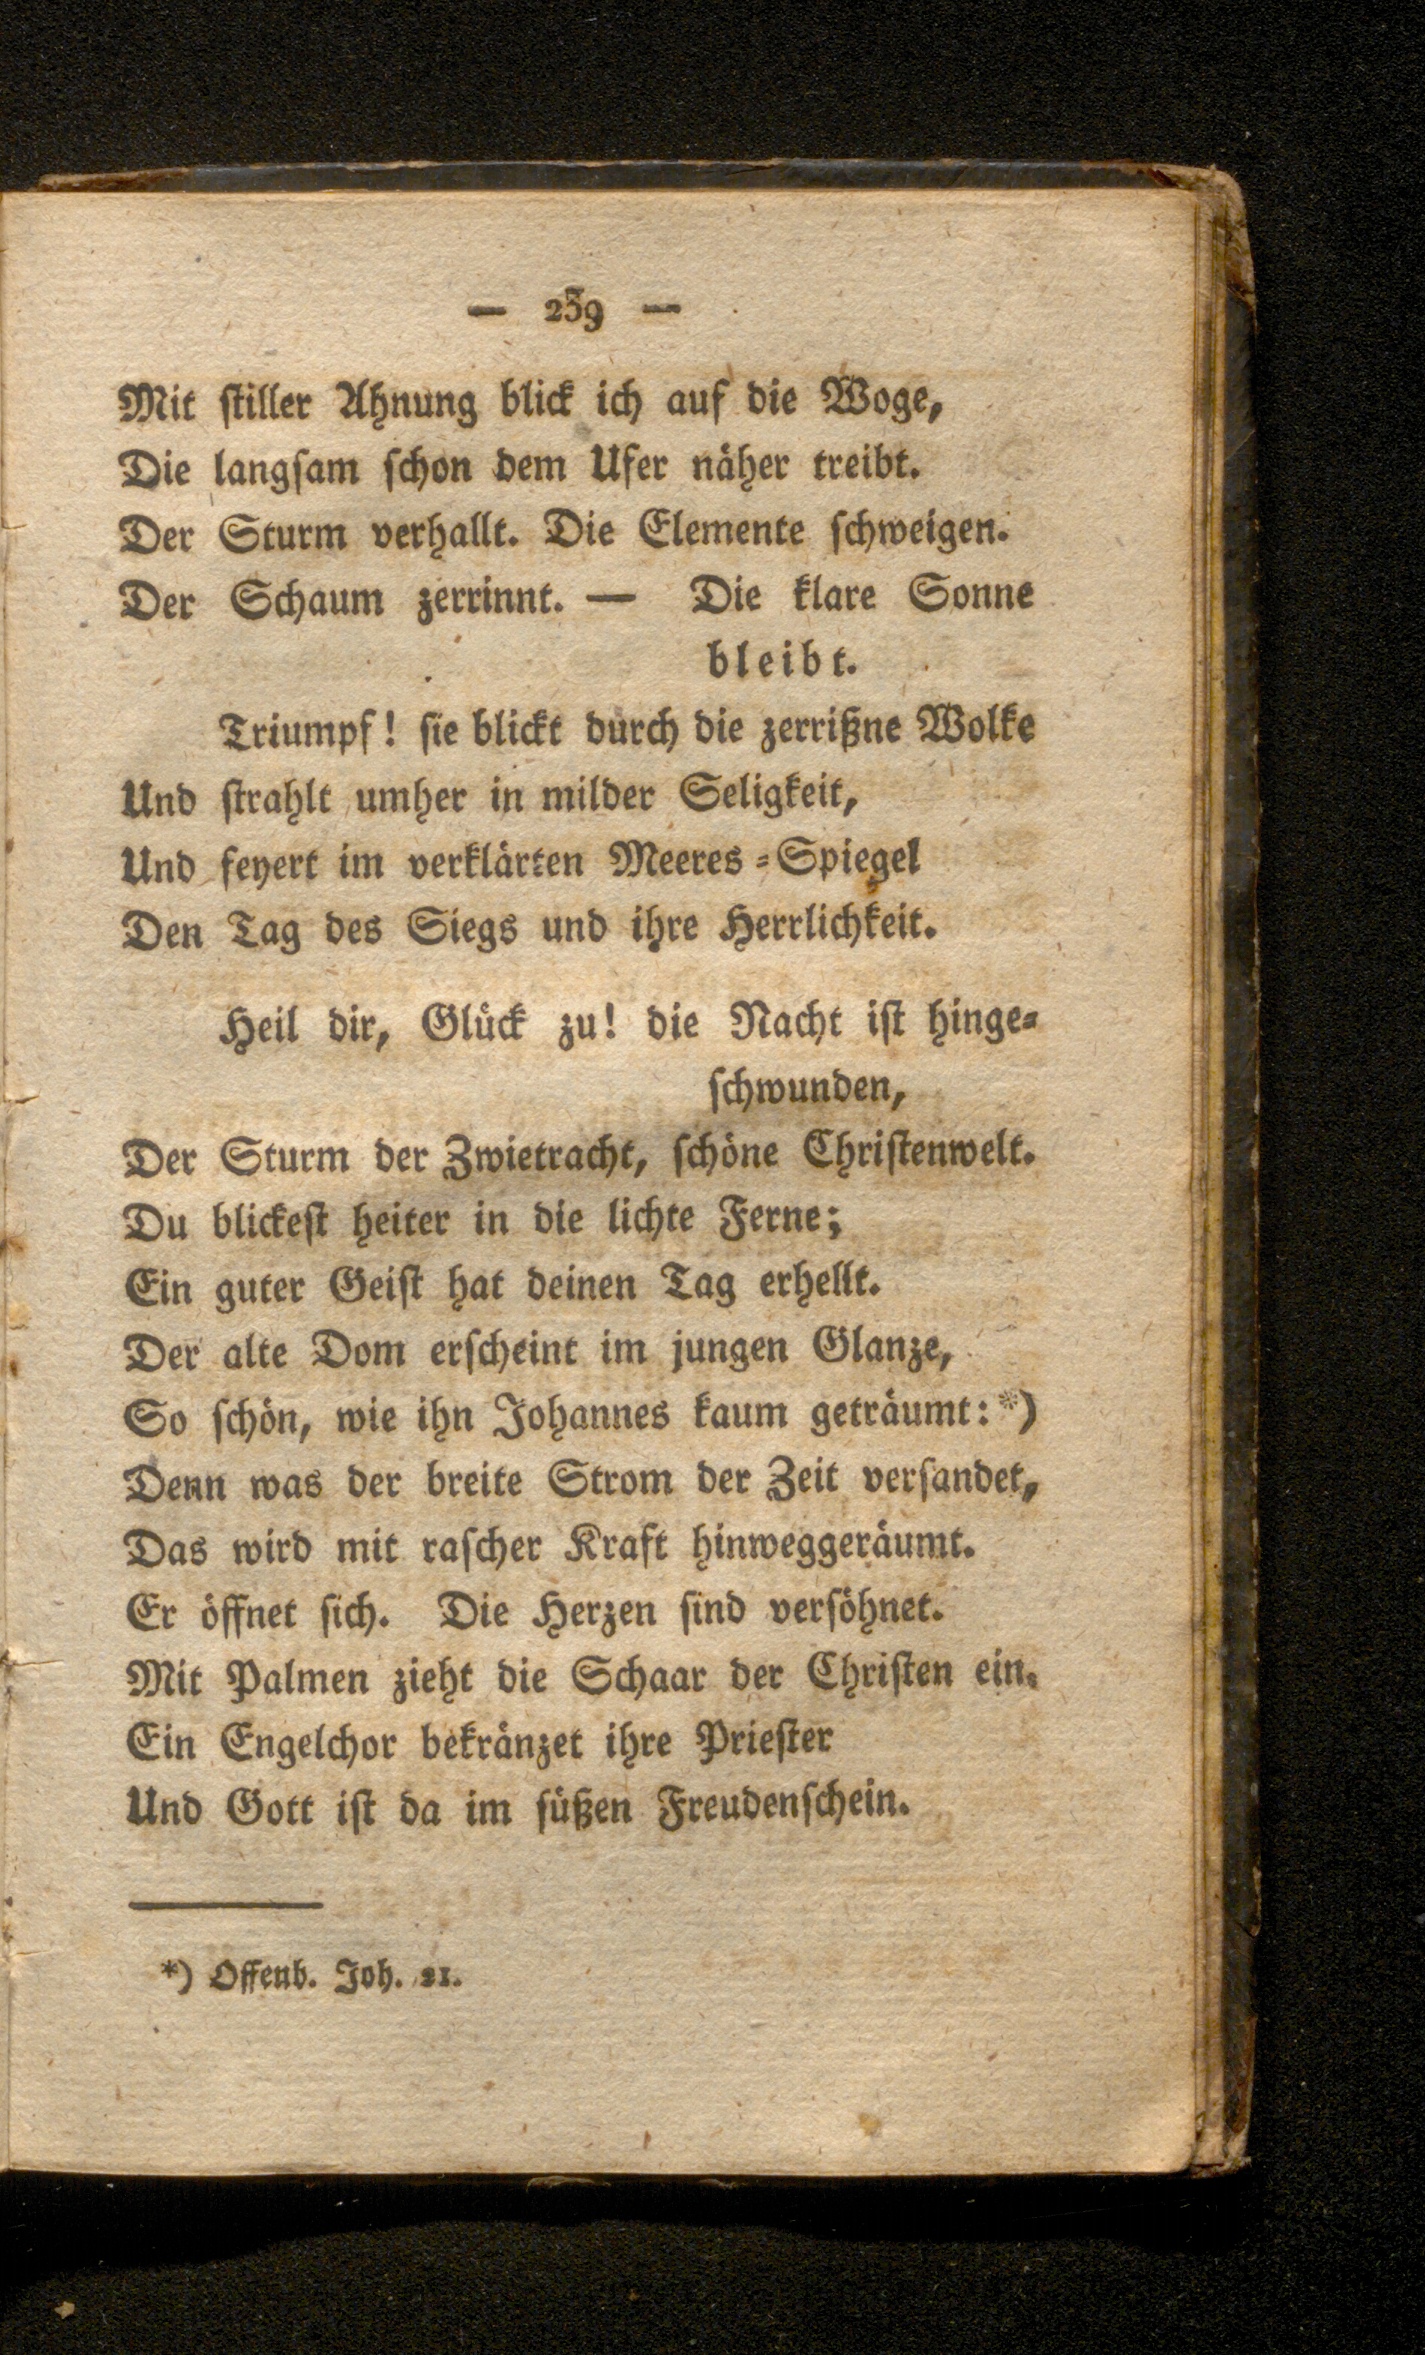 — 239 —
Mit ſtiller Ahnung blick ich auf die Woge,
Die langſam ſchon dem Ufer näher treibt.
Der Sturm verhallt. Die Elemente ſchweigen.
Der Schaum zerrinnt. — Die klare Sonne
bleibt.
Triumpf! ſie blickt durch die zerrißne Wolke
Und ſtrahlt umher in milder Seligkeit,
Und feyert im verklärten Meeres-Spiegel
Den Tag des Siegs und ihre Herrlichkeit.
Heil dir, Glück zu! die Nacht iſt hinge-
ſchwunden,
Der Sturm der Zwietracht, ſchöne Chriſtenwelt.
Du blickeſt heiter in die lichte Ferne;
Ein guter Geiſt hat deinen Tag erhellt.
Der alte Dom erſcheint im jungen Glanze,
So ſchön, wie ihn Johannes kaum geträumt: *)
Denn was der breite Strom der Zeit verſandet,
Das wird mit raſcher Kraft hinweggeräumt.
Er öffnet ſich. Die Herzen ſind verſöhnet.
Mit Palmen zieht die Schaar der Chriſten ein.
Ein Engelchor bekränzet ihre Prieſter
Und Gott iſt da im ſüßen Freudenſchein.
*) Offenb. Joh. 21.